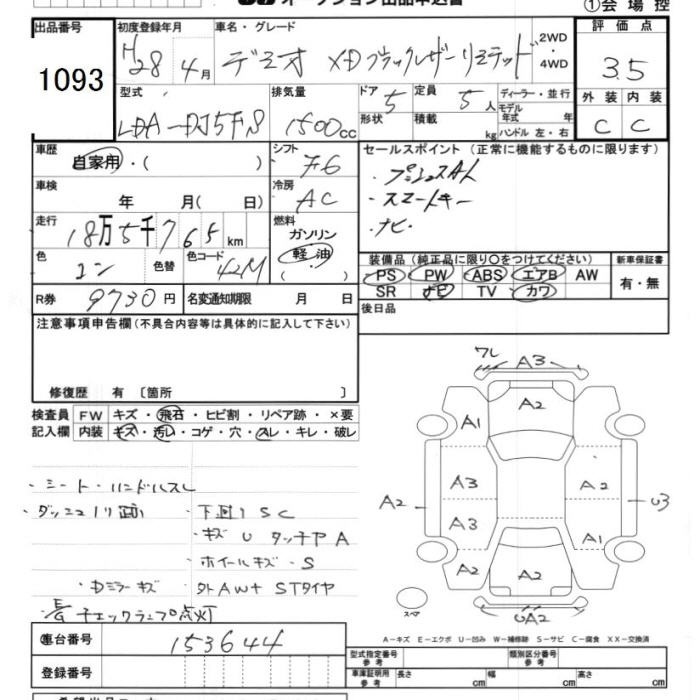 オークション出品申込書
①会場控
出品番号 初度登録年月 車名・グレード 評価点
1093 H28 4月 デミオ XDブラックレザーリミテッド 2WD・4WD 3.5
型式 排気量 ドア 5 定員 5人 ディーラー・並行 外装 内装
LDA-DJ5FS 1500cc 形状 積載 kg モデル年式 年 ハンドル 左・右 C C
車歴 自家用・( ) シフト F6 セールスポイント (正常に機能するものに限ります)
車検 年 月( 日) 冷房 AC
・スマートキー
・ナビ・
走行 18万5千765km 燃料 ガソリン 軽油
色 コン 色替 色コード 42M
装備品 (純正品に限り○をつけてください) 新車保証書
PS PW ABS エアB AW 有・無
SR ナビ TV カワ
R券 9730円 名変通知期限 月 日 後日品
注意事項申告欄 (不具合内容等は具体的に記入して下さい)
修復歴 有 〔箇所 〕
検査員 FW キズ・飛石・ヒビ割・リペア跡・×要
記入欄 内装 キズ・汚い・コゲ・穴・スレ・キレ・破レ
ワレ A3
A2
A1
A3 A2
A2 U3
A3 A1
A2 A2
UA2
スペア
・シート・ハンドルスレ
・ダッシュノリ跡 ・下廻りSC
・キズ U タッチヤA
・ホイールキズ・S
・Dミラーキズ 外AW+STタイヤ
チェックランプ点灯
車台番号 153644
登録番号
A-キズ E-エクボ U-凹み W-補修跡 S-サビ C-腐食 XX-交換済
型式指定番号 参考 類別区分番号 参考
車庫証明用 参考 長さ cm 幅 cm 高さ cm